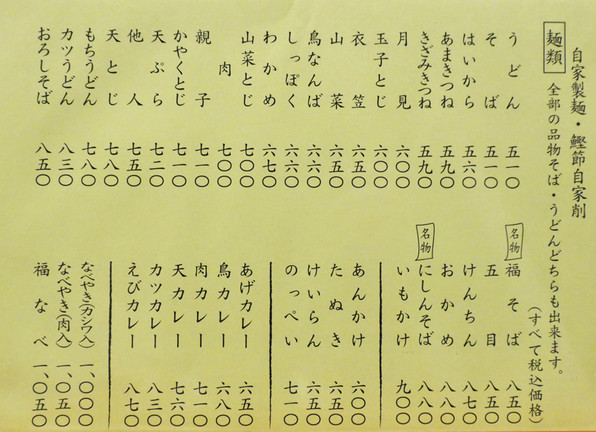 自家製麺・鰹節自家削
麺類 全部の品物そば・うどんどちらも出来ます。
(すべて税込価格)
うどん 五一〇
そば 五一〇
はいから 五六〇
あまきつね 五九〇
きざみきつね 五九〇
月見 六〇〇
玉子とじ 六〇〇
衣笠 六五〇
山菜 六五〇
鳥なんば 六六〇
しっぽく 六六〇
わかめ 六七〇
山菜とじ 七〇〇
肉 七〇〇
親子 七一〇
かやくとじ 七一〇
天ぷら 七二〇
他人 七五〇
天とじ 七八〇
もちうどん 七八〇
カツうどん 八三〇
おろしそば 八五〇
名物 福そば 八五〇
五目 八五〇
けんちん 八七〇
おかめ 八八〇
名物 にしんそば 八八〇
いもかけ 九〇〇
あんかけ 六〇〇
たぬき 六五〇
けいらん 六五〇
のっぺい 七一〇
あげカレー 六五〇
鳥カレー 六八〇
肉カレー 七一〇
天カレー 七六〇
カツカレー 八三〇
えびカレー 八七〇
なべやき(カシワ入) 一、〇〇〇
なべやき(肉入) 一、〇五〇
福なべ 一、〇五〇